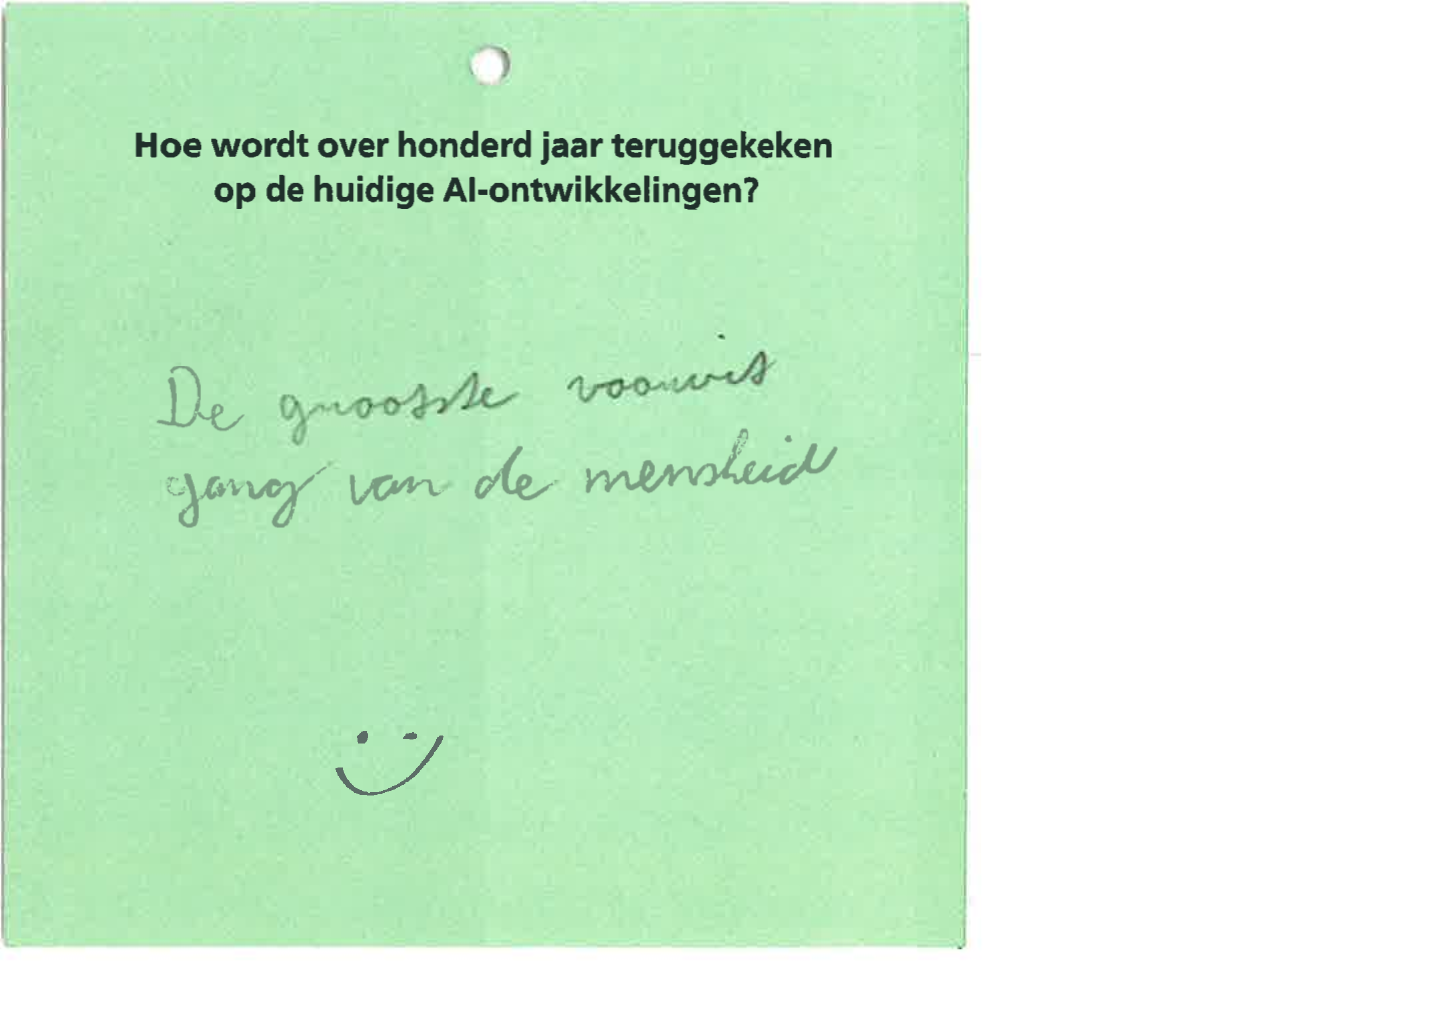 Hoe wordt over honderd jaar teruggekeken
op de huidige AI-ontwikkelingen?
De grootste vooruit
gang van de mensheid